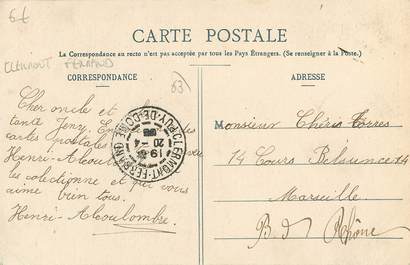 6€
CARTE POSTALE
La Correspondance au recto n'est pas acceptée par tous les Pays Étrangers. (Se renseigner à la Poste.)
CLERMONT FERRAND
CORRESPONDANCE
63
Cher oncle et
tante Jeny.
cartes postales
Henri-Alcoulombre
les colectionne et qui vous
aime bien tous.
Henri-Alcoulombre.
CLERMONT-FERRAND
PUY-DE-DOME
19
20 - 4
ADRESSE
Monsieur Chéri Torres
14 Cours Belsunce 14
Marseille
B. d. Rhône